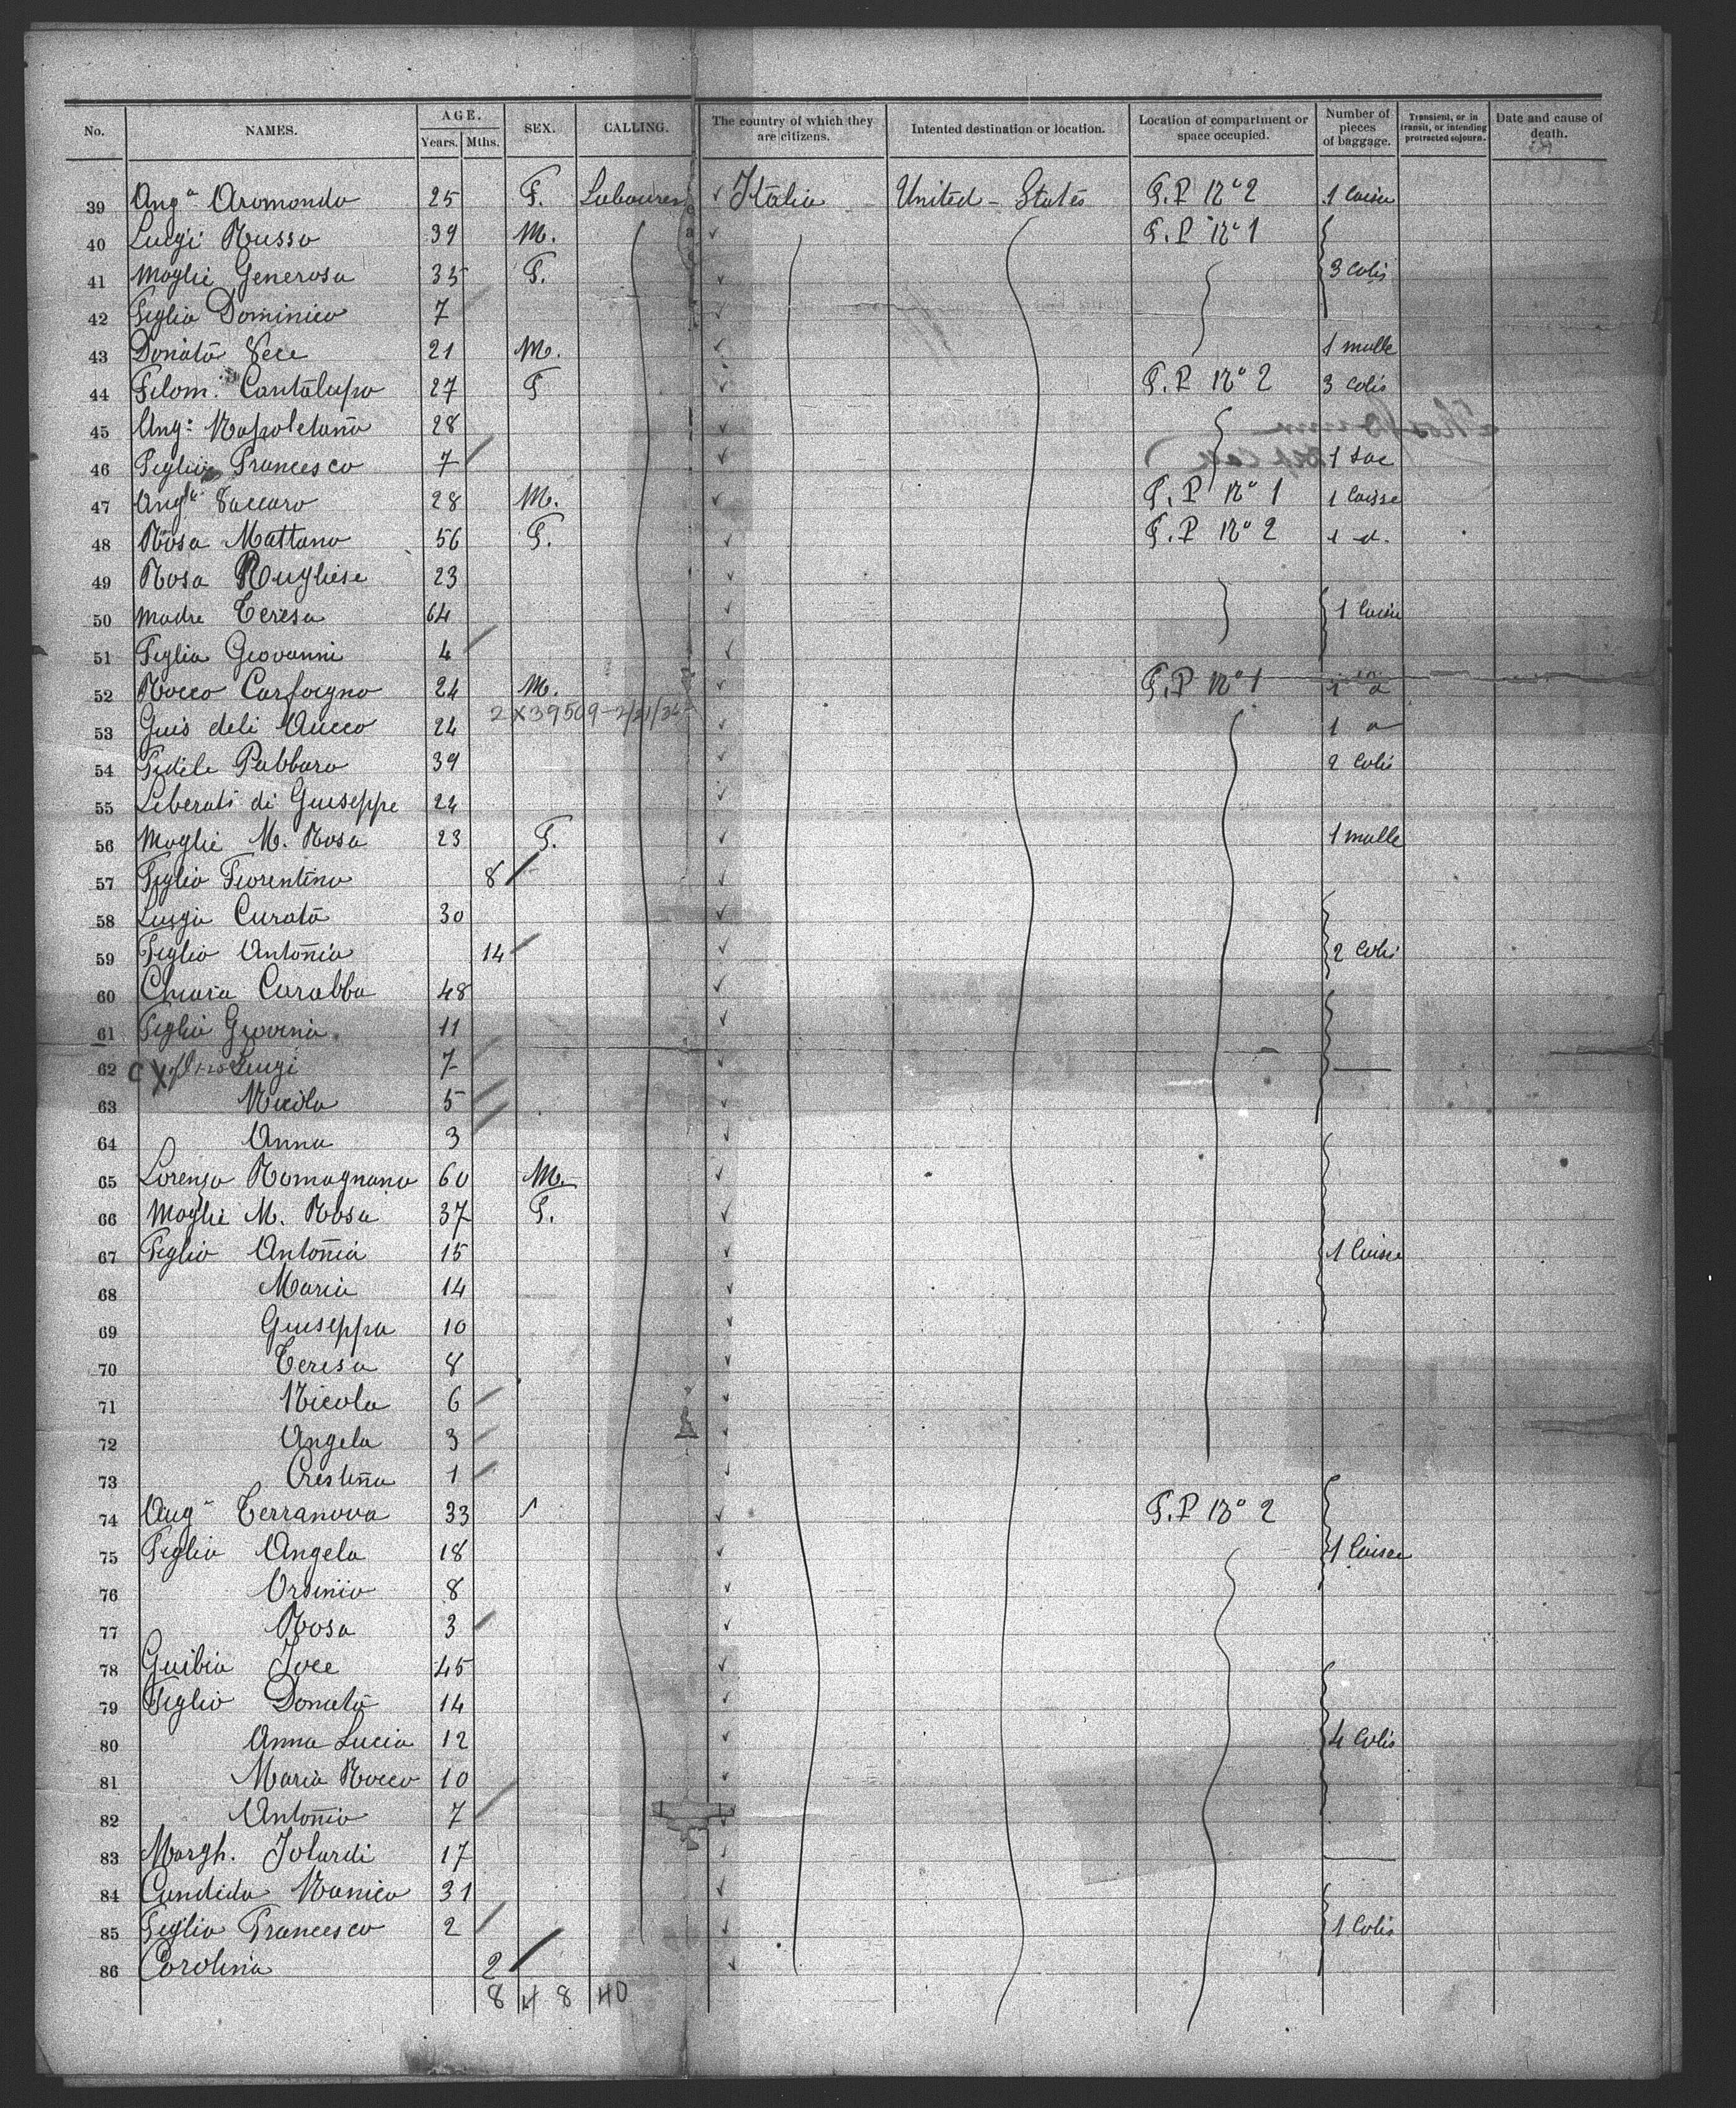 No. NAMES. AGE. Years. Mths. SEX. CALLING. The country of which they are citizens. Intented destination or location. Location of compartment or space occupied. Number of pieces of baggage. Transient, or in transit, or intending protracted sojourn. Date and cause of death.
39 Ang.a Aromondo 25 F. Labourer Italia United - States 1 Caisse
40 Luigi Russo 39 M.
41 Moglie Generosa 35 F. 3 Colis
42 Figlio Dominico 7
43 Donato 21 M. 1 malle
44 Filom. Cantalupo 27 F 3 Colis
45 Ang. Napoletano 28
46 Figlio Francesco 7 1 Sac
47 Vaccaro 28 M. 1 Caisse
48 Rosa Mattano 56 F. 1 d.
49 Rosa Pugliese 23
50 Madre Teresa 64 1 Caisse
51 Figlio Giovanni 4
52 Rocco Carfagno 24 M.
2X39509-2/21/36
53 24 1
54 Fidele Pabbaro 39 2 Colis
55 Liberati di Giuseppe 24
56 Moglie M. Rosa 23 F. 1 malle
57 Figlio Fiorentino 8
58 Luigia Curato 30
59 Figlio Antonio 14 2 Colis
60 Chiara Carabba 48
61 Figlio Giovina 11
62 Luigi 7
63 Nicola 5
64 Anna 3
65 Lorenzo Romagnano 60 M.
66 Moglie M. Rosa 37 F.
67 Figlio Antonia 15 1 Caisse
68 Maria 14
69 Giuseppa 10
70 Teresa 8
71 Nicola 6
72 Angela 3
73 Crestina 1
74 Ang.a Terranova 33
75 Figlio Angela 18 1 Caisse
76 8
77 Rosa 3
78 45
79 Figlio Donato 14
80 Anna Lucia 12 4 Colis
81 Maria Rocco 10
82 Antonio 7
83 Margh. Jolardi 17
84 Candida Manica 31
85 Figlio Francesco 2 1 Colis
86 Carolina 2
8 4 8 40